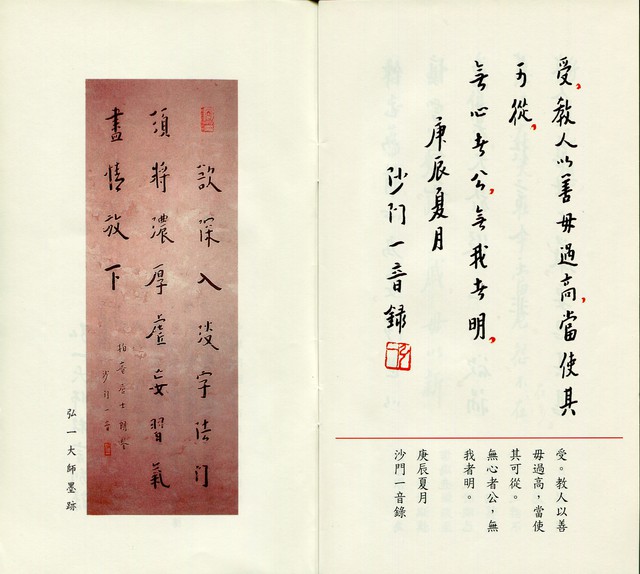 受，教人以善毋過高，當使其
可從，
無心者公，無我者明，
庚辰夏月
沙門一音錄
受。教人以善
毋過高，當使
其可從。
無心者公，無
我者明。
庚辰夏月
沙門一音錄
欲深入淡字法門
須將濃厚虛妄習氣
盡情放下
居士
沙門一音
弘一大師墨跡